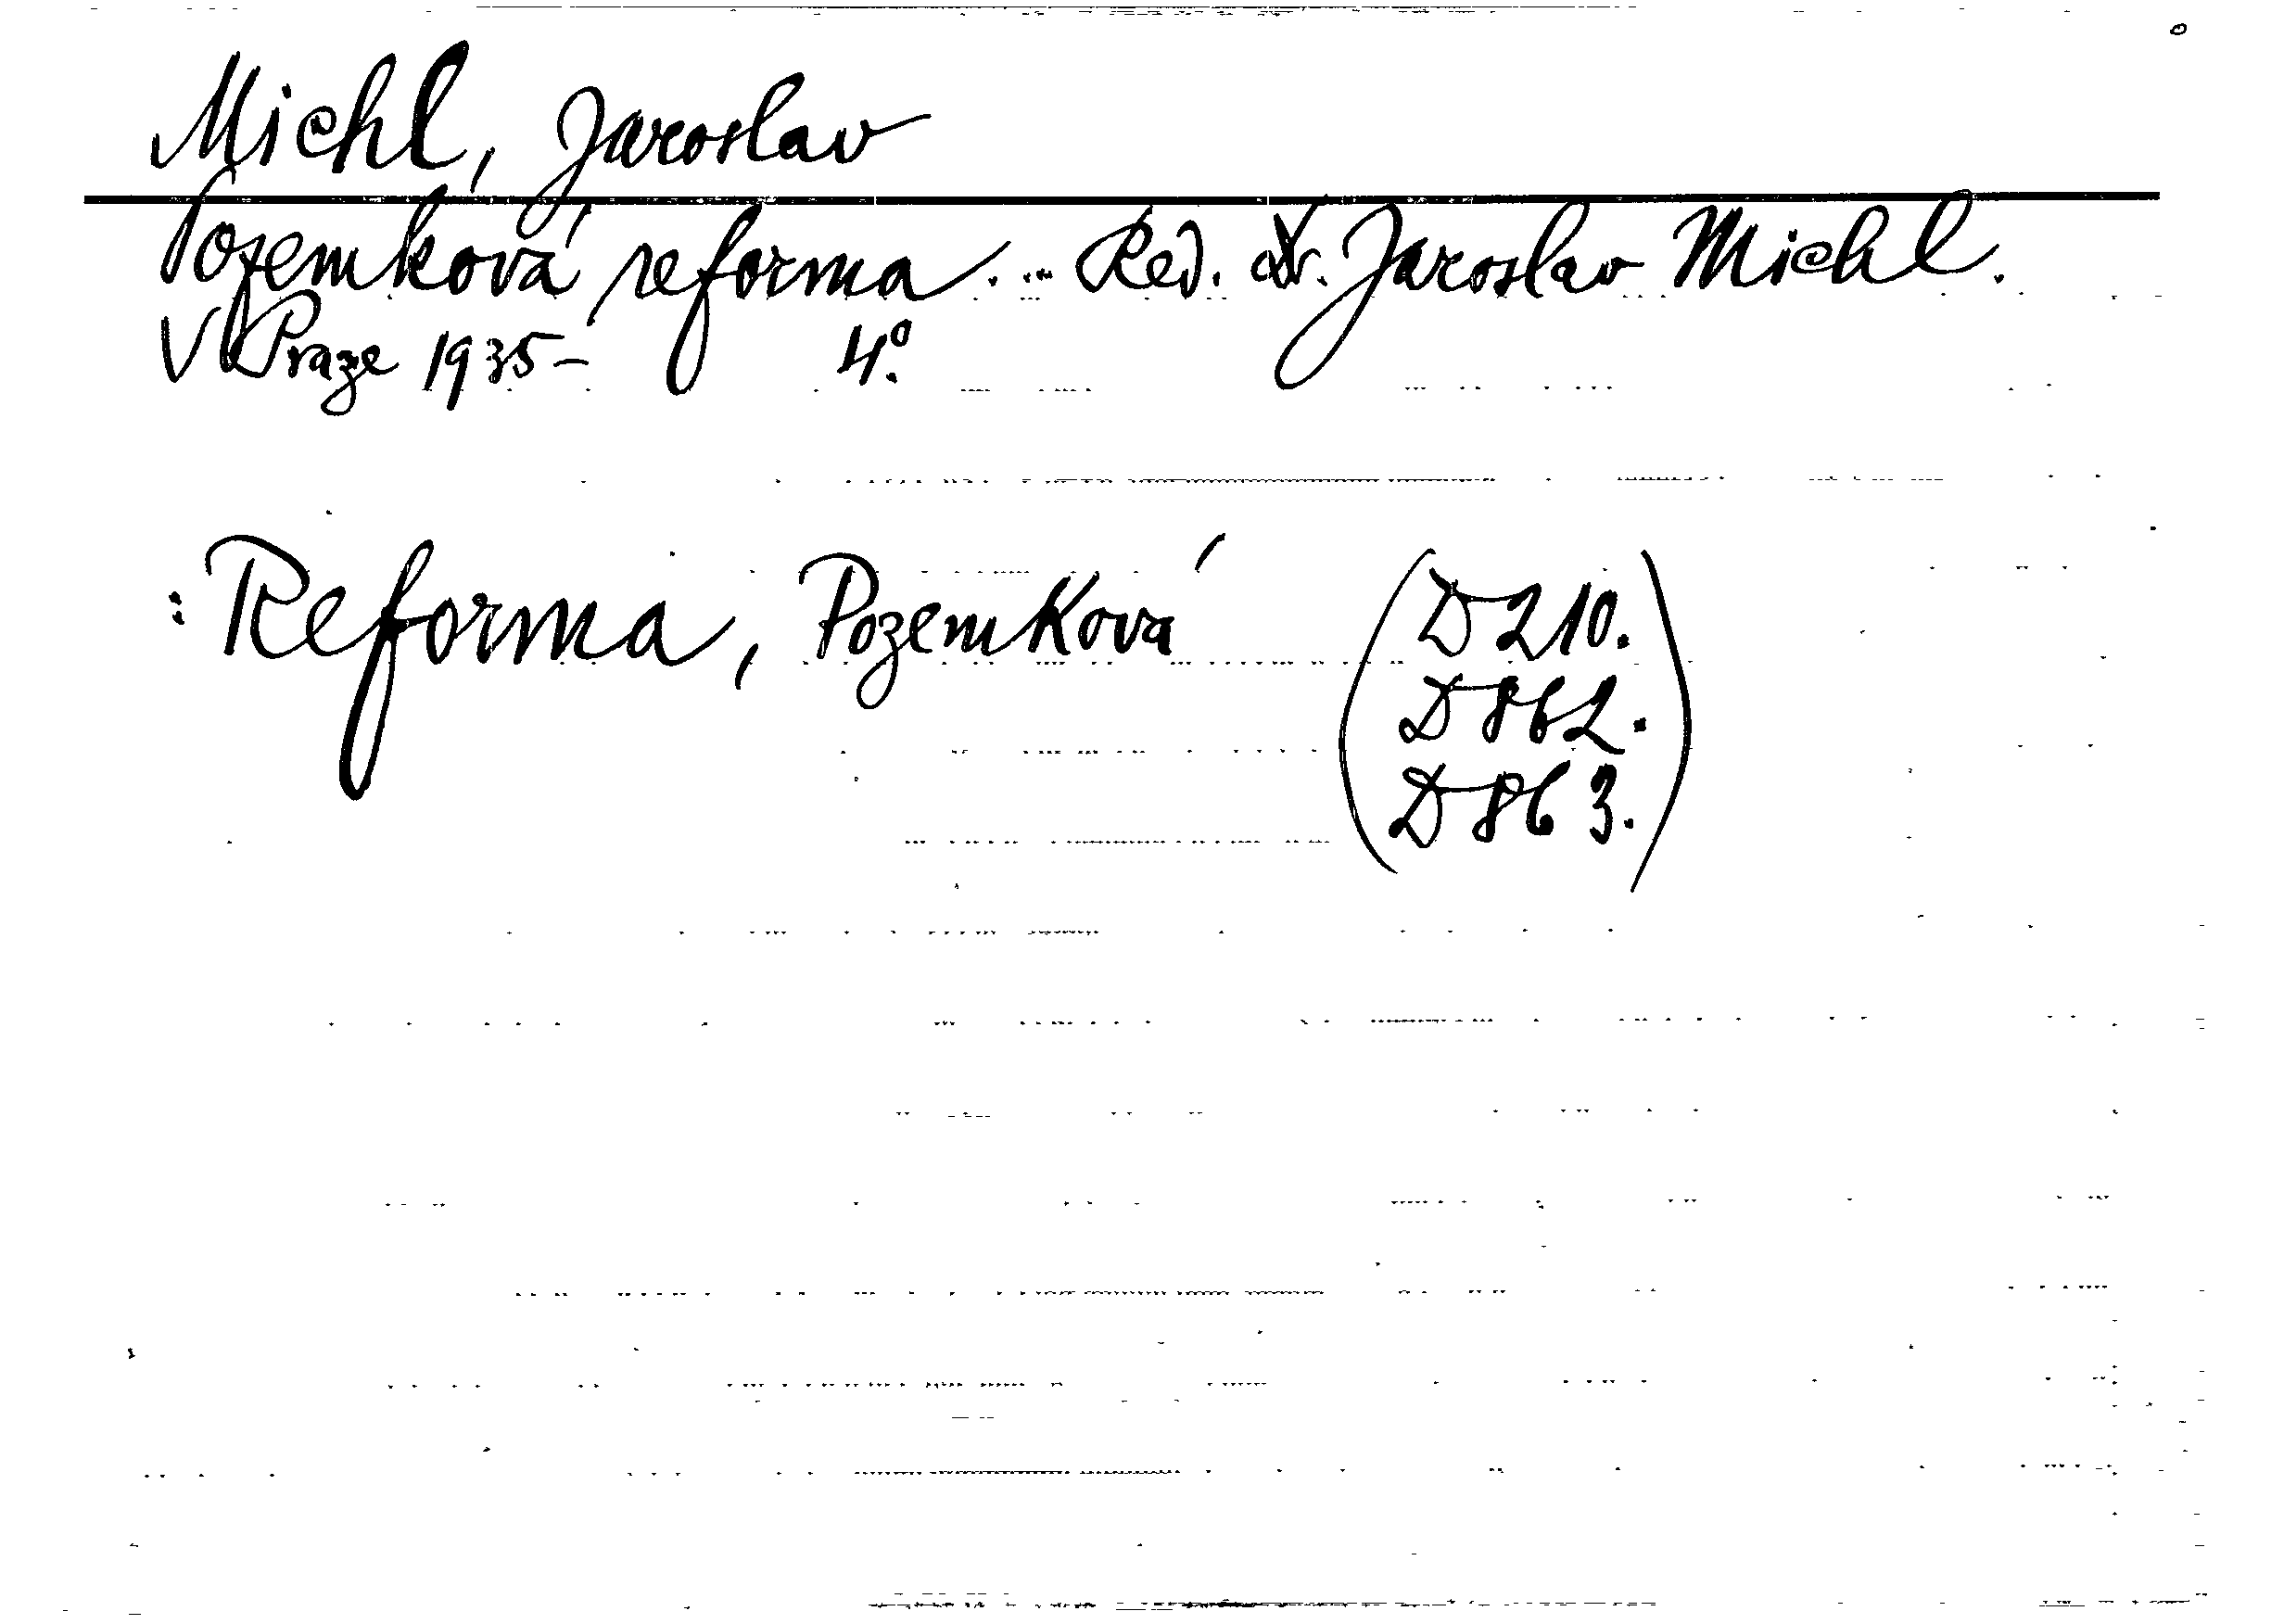 Michl, Jaroslav
Pozemková reforma... Red. Dr. Jaroslav Michl.
V Praze 1935- 4°.
: Reforma, Pozemková (D 210.
D 862.
D 863.)